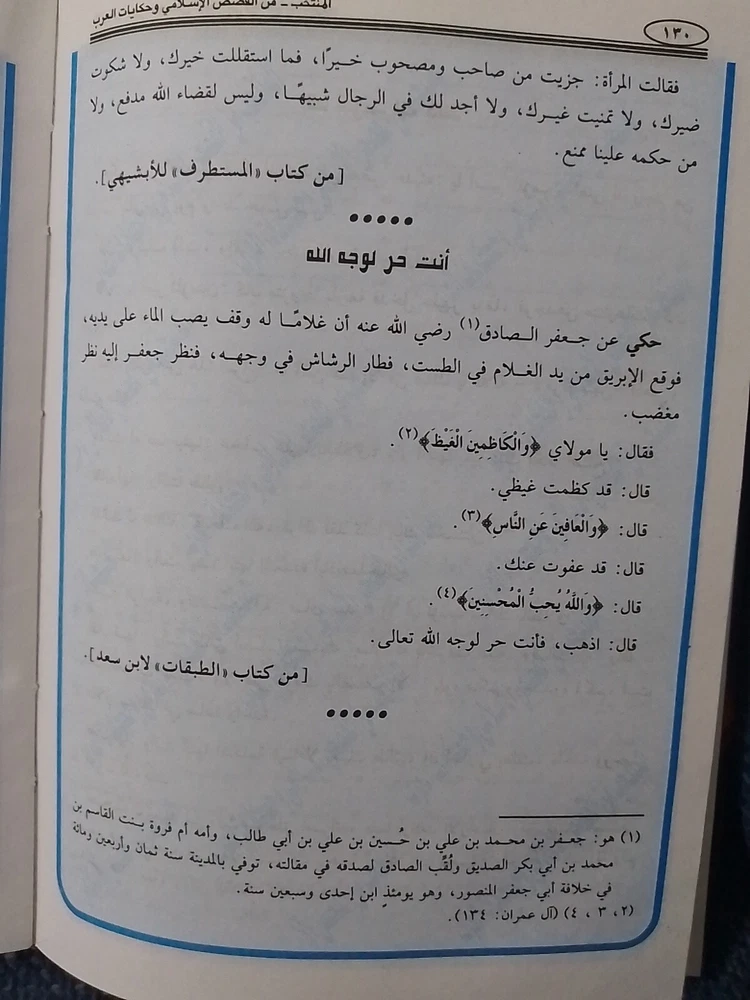 المنتخب – من القصص الإسلامي وحكايات العرب
١٣٠
فقالت المرأة: جزيت من صاحب ومصحوب خيرًا، فما استقللت خيرك، ولا شكوت
ضيرك، ولا تمنيت غيرك، ولا أجد لك في الرجال شبيهًا، وليس لقضاء الله مدفع، ولا
من حكمه علينا ممنع.
[من كتاب «المستطرف» للأبشيهي].
●●●●●
أنت حر لوجه الله
حكي عن جعفر الصادق(١) رضي الله عنه أن غلامًا له وقف يصب الماء على يديه،
فوقع الإبريق من يد الغلام في الطست، فطار الرشاش في وجهه، فنظر جعفر إليه نظر
مغضب.
فقال: يا مولاي ﴿وَالْكَاظِمِينَ الْغَيْظَ﴾(٢).
قال: قد كظمت غيظي.
قال: ﴿وَالْعَافِينَ عَنِ النَّاسِ﴾(٣).
قال: قد عفوت عنك.
قال: ﴿وَاللَّهُ يُحِبُّ الْمُحْسِنِينَ﴾(٤).
قال: اذهب، فأنت حر لوجه الله تعالى.
[من كتاب «الطبقات» لابن سعد].
●●●●●
(١) هو: جعفر بن محمد بن علي بن حُسين بن علي بن أبي طالب، وأمه أم فروة بنت القاسم بن
محمد بن أبي بكر الصديق ولُقِّب الصادق لصدقه في مقالته، توفي بالمدينة سنة ثمان وأربعين ومائة
في خلافة أبي جعفر المنصور، وهو يومئذٍ ابن إحدى وسبعين سنة.
(٢، ٣ ، ٤) (آل عمران: ١٣٤).